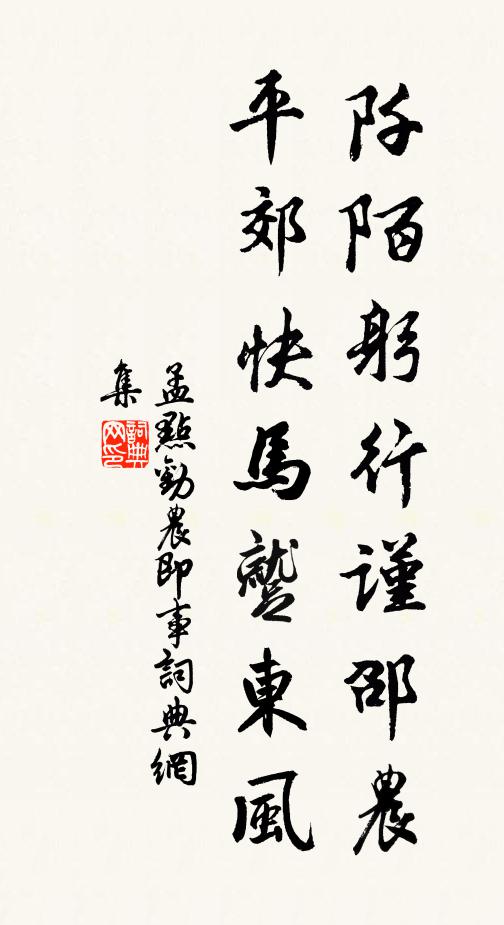 阡陌躬行謹邵農
平郊快馬蹔東風
孟點勸農即事詞典網
集
詞典
网印